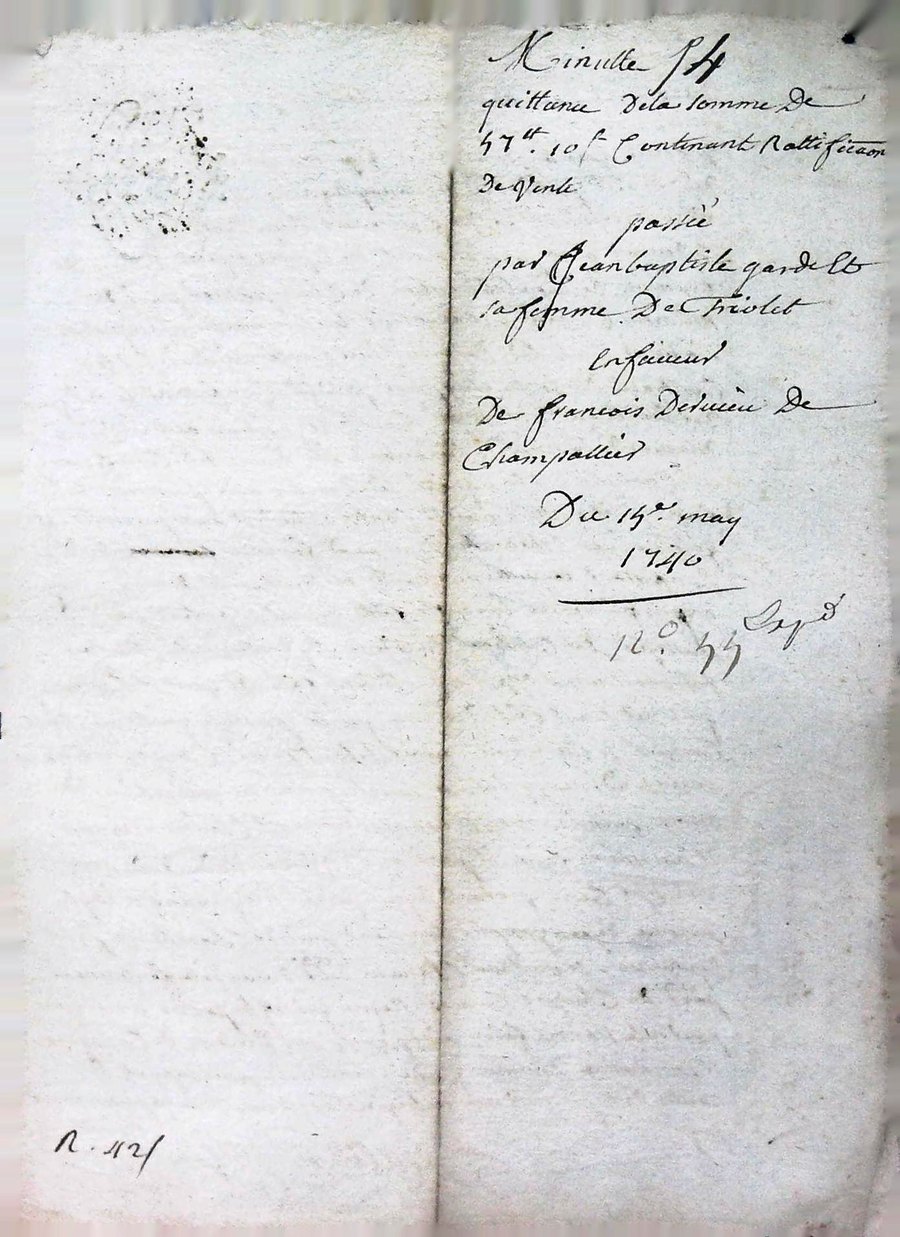 Minutte 54
quittance Dela somme De
57ᵗᵗ. 10ſ Contenant Rattificaon
De Vente
passée
par Jeanbaptiste garde Et
sa femme De Triolet
Enfaueur
De francois Deruieu De
Champallier
Du 15ᵉ. may
1740
N°. 55
R. 42ſ